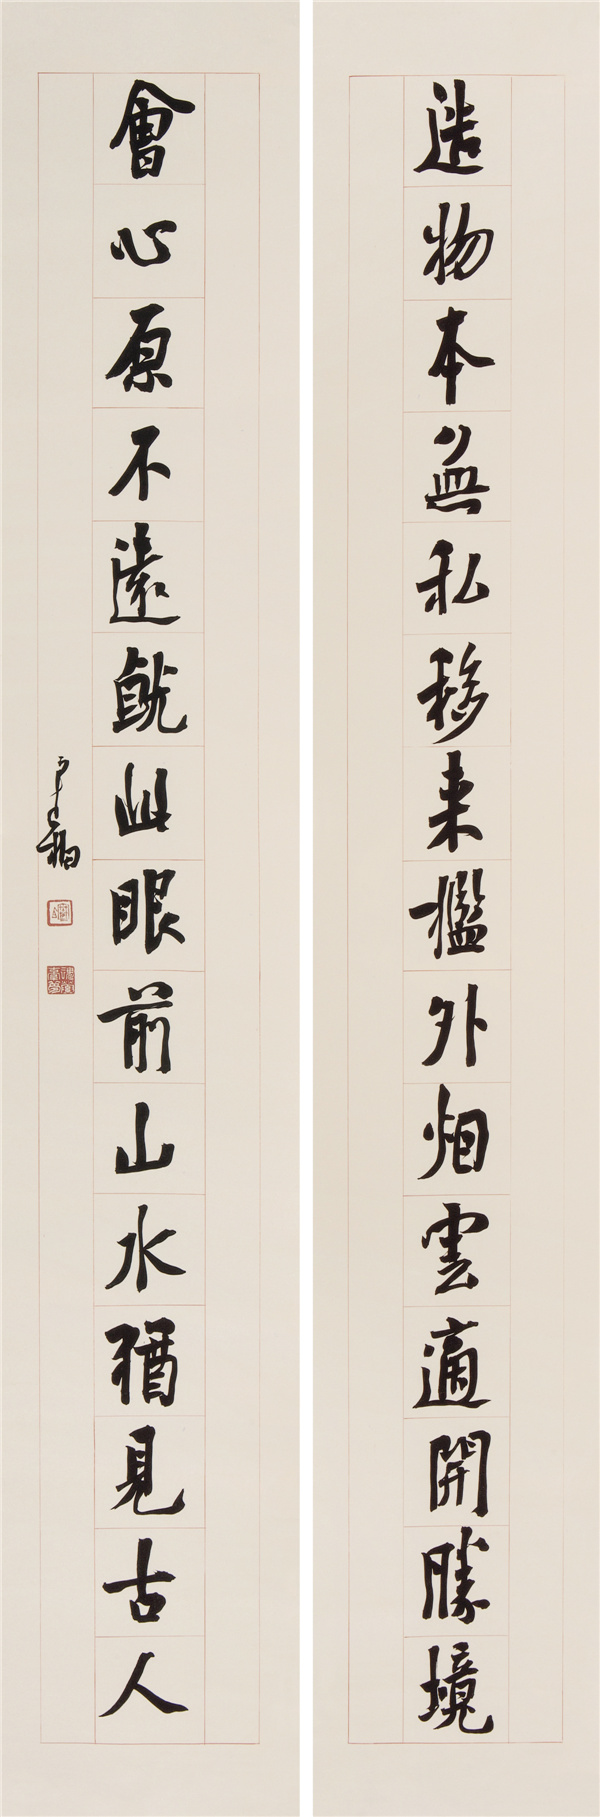 造物本無私移来檻外烟雲適開勝境
會心原不遠就此眼前山水猶見古人